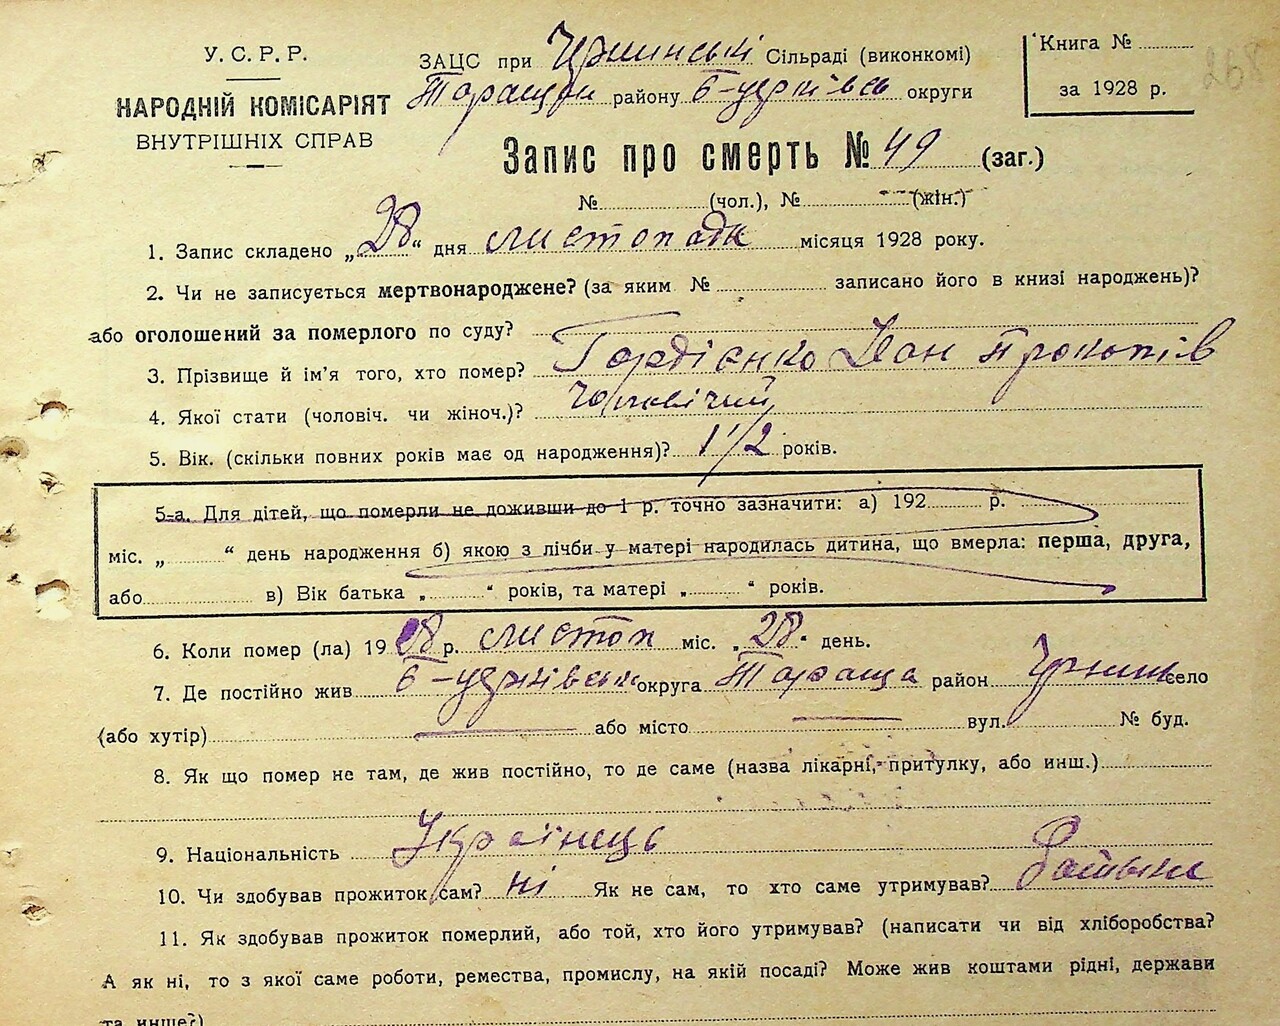 У.С.Р.Р.
НАРОДНІЙ КОМІСАРІЯТ
ВНУТРІШНІХ СПРАВ
ЗАЦС при Сільраді (виконкомі)
району Б-церківсь округи
Книга №
за 1928 р.
298
Запис про смерть № 49 (заг.)
№ (чол.), № (жін.)
1. Запис складено „28“ дня листопада місяця 1928 року.
2. Чи не записується мертвонароджене? (за яким № записано його в книзі народжень)?
або оголошений за померлого по суду?
3. Прізвище й ім'я того, хто помер? Гордієнко Іван Прокопів
4. Якої стати (чоловіч. чи жіноч.)? Чоловічий
5. Вік. (скільки повних років має од народження)? 1 1/2 років.
5-а. Для дітей, що померли не доживши до 1 р. точно зазначити: а) 192 р.
міс. „ “ день народження б) якою з лічби у матері народилась дитина, що вмерла: перша, друга,
або в) Вік батька „ “ років, та матері „ “ років.
6. Коли помер (ла) 1928 р. листоп міс. „28“ день.
7. Де постійно жив округа Тараща район село
(або хутір) або місто вул. № буд.
8. Як що помер не там, де жив постійно, то де саме (назва лікарні, притулку, або инш.)
9. Національність Українець
10. Чи здобував прожиток сам? ні Як не сам, то хто саме утримував? Батьки
11. Як здобував прожиток померлий, або той, хто його утримував? (написати чи від хліборобства?
А як ні, то з якої саме роботи, ремества, промислу, на якій посаді? Може жив коштами рідні, держави
та инше?)